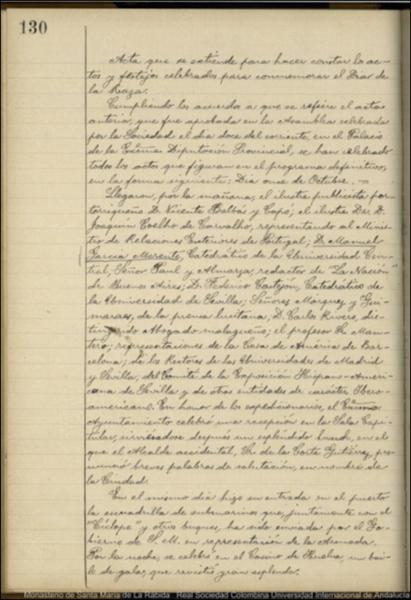 130
Acta que se extiende para hacer constar los ac-
tos y festejos celebrados para conmemorar el Dia de
la Raza.
Cumpliendo los acuerdos a que se refiere el acta
anterior, que fue aprobada en la Asamblea celebrada
por la Sociedad el dia doce del corriente, en el Palacio
de la Excma Diputación Provincial, se han celebrado
todos los actos que figuran en el programa definitivo,
en la forma siguiente: Dia once de Octubre. —
Llegaron, por la mañana; el ilustre publicista por-
torriqueño D. Vicente Balbás y Capó; el ilustre Dr. D.
Joaquin Coelho de Carvalho, representando al Minis-
tro de Relaciones Exteriores de Portugal; D. Manuel
García Morente, Catedrático de la Universidad Cen-
tral, Señor Paul y Almarza, redactor de "La Nación"
de Buenos Aires; D. Federico Castejón, Catedrático de
la Universidad de Sevilla; Señores Marquez y Gui-
maraes, de la prensa lusitana; D. Carlos Rivero, dis-
tinguido Abogado malagueño; el profesor Sr. Man-
tero; representaciones de la Casa de América de Bar-
celona; de los Rectores de las Universidades de Madrid
y Sevilla, del Comité de la Exposición Hispano-Ameri-
cana de Sevilla y de otras entidades de carácter Ibero-
americano. En honor de los expedicionarios, el Excmo
Ayuntamiento celebró una recepción en la Sala Capi-
tular, sirviéndose después un espléndido lunch, en el
que el Alcalde accidental, Sr. de la Corte Gutiérrez, pro-
nunció breves palabras de salutación, en nombre de
la Ciudad.
En el mismo dia hizo su entrada en el puerto
la escuadrilla de submarinos que, juntamente con el
"Cíclope" y otros buques, ha sido enviada por el Go-
bierno de S. M. en representación de la Armada.
Por la noche, se celebró en el Casino de Huelva, un bai-
le de galas, que revistió gran esplendor.
Monasterio de Santa María de La Rábida. Real Sociedad Colombina Universidad Internacional de Andalucía